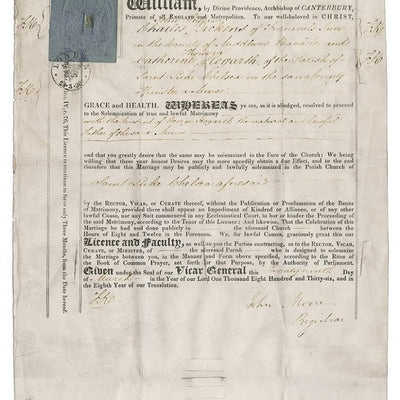 William, by Divine Providence, Archbishop of CANTERBURY,
Primate of all ENGLAND and Metropolitan. To our well-beloved in CHRIST,
Charles Dickens of Furnivals Inn
in the County of Middlesex Bachelor and
Catherine Hogarth of the Parish of
Saint Luke Chelsea in the same County
Spinster a minor
GRACE and HEALTH. WHEREAS ye are, as it is alledged, resolved to proceed
to the Solemnization of true and lawful Matrimony
with the consent of George Hogarth the natural and lawful
father of the said minor
and that you greatly desire that the same may be solemnized in the Face of the Church: We being
willing that these your honest Desires may the more speedily obtain a due Effect, and to the end
therefore that this Marriage may be publicly and lawfully solemnized in the Parish Church of
Saint Luke Chelsea aforesaid
by the RECTOR, VICAR, or CURATE thereof, without the Publication or Proclamation of the Banns
of Matrimony, provided there shall appear no Impediment of Kindred or Alliance, or of any other
lawful Cause, nor any Suit commenced in any Ecclesiastical Court, to bar or hinder the Proceeding of the
said Matrimony, according to the Tenor of this Licence: And likewise, That the Celebration of this
Marriage be had and done publicly in the aforesaid Church between the
Hours of Eight and Twelve in the Forenoon. We for lawful Causes, graciously grant this our
Licence and Faculty, as well to you the Parties contracting, as to the RECTOR, VICAR,
CURATE, or MINISTER, of the aforesaid Parish who is designed to solemnize
the Marriage between you, in the Manner and Form above specified, according to the Rites
of the Book of Common Prayer, set forth for that Purpose, by the Authority of Parliament.
Given under the Seal of our Vicar General this twenty ninth Day
of March in the Year of our Lord One Thousand Eight Hundred and Thirty-six, and in
the Eighth Year of our Translation.
John Moore
Registrar
IV. c. 76. This Licence to continue in force only Three Months, from the Date hereof.